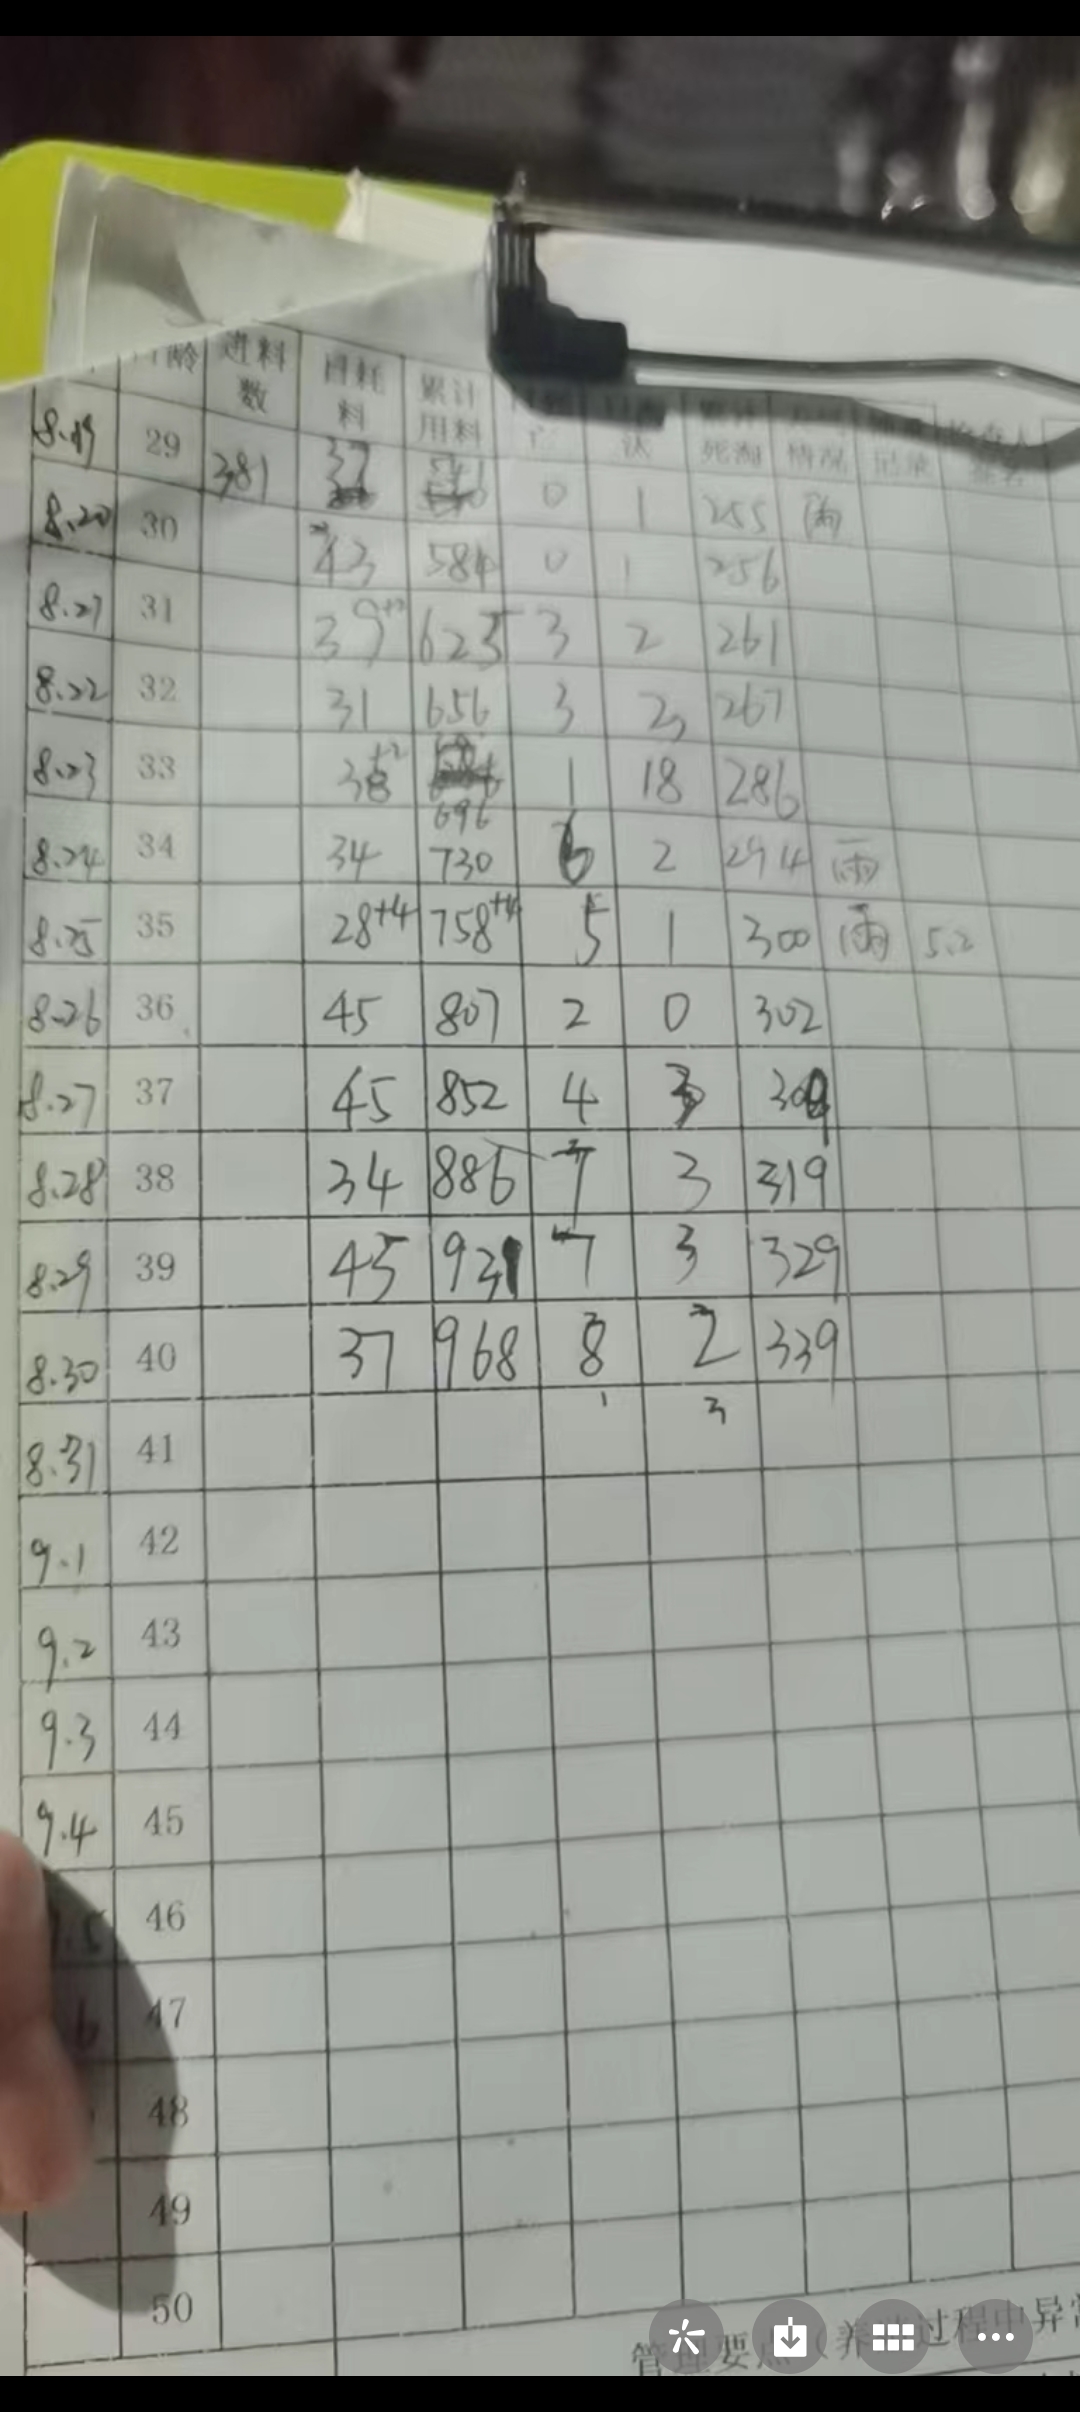 日龄 进料数 日耗料 累计用料 死淘 情况
8.19 29 381 37 541 0 1 255 雨
8.20 30 43 584 0 1 256
8.21 31 39+2 625 3 2 261
8.22 32 31 656 3 2 267
8.23 33 38+2 696 1 18 286
8.24 34 34 730 6 2 294 雨
8.25 35 28+4 758+4 5 1 300 雨 5.2
8.26 36 45 807 2 0 302
8.27 37 45 852 4 3 309
8.28 38 34 886 7 3 319
8.29 39 45 931 7 3 329
8.30 40 37 968 8 2 339
1 3
8.31 41
9.1 42
9.2 43
9.3 44
9.4 45
46
47
48
49
50
管理要点（养 过程中异常